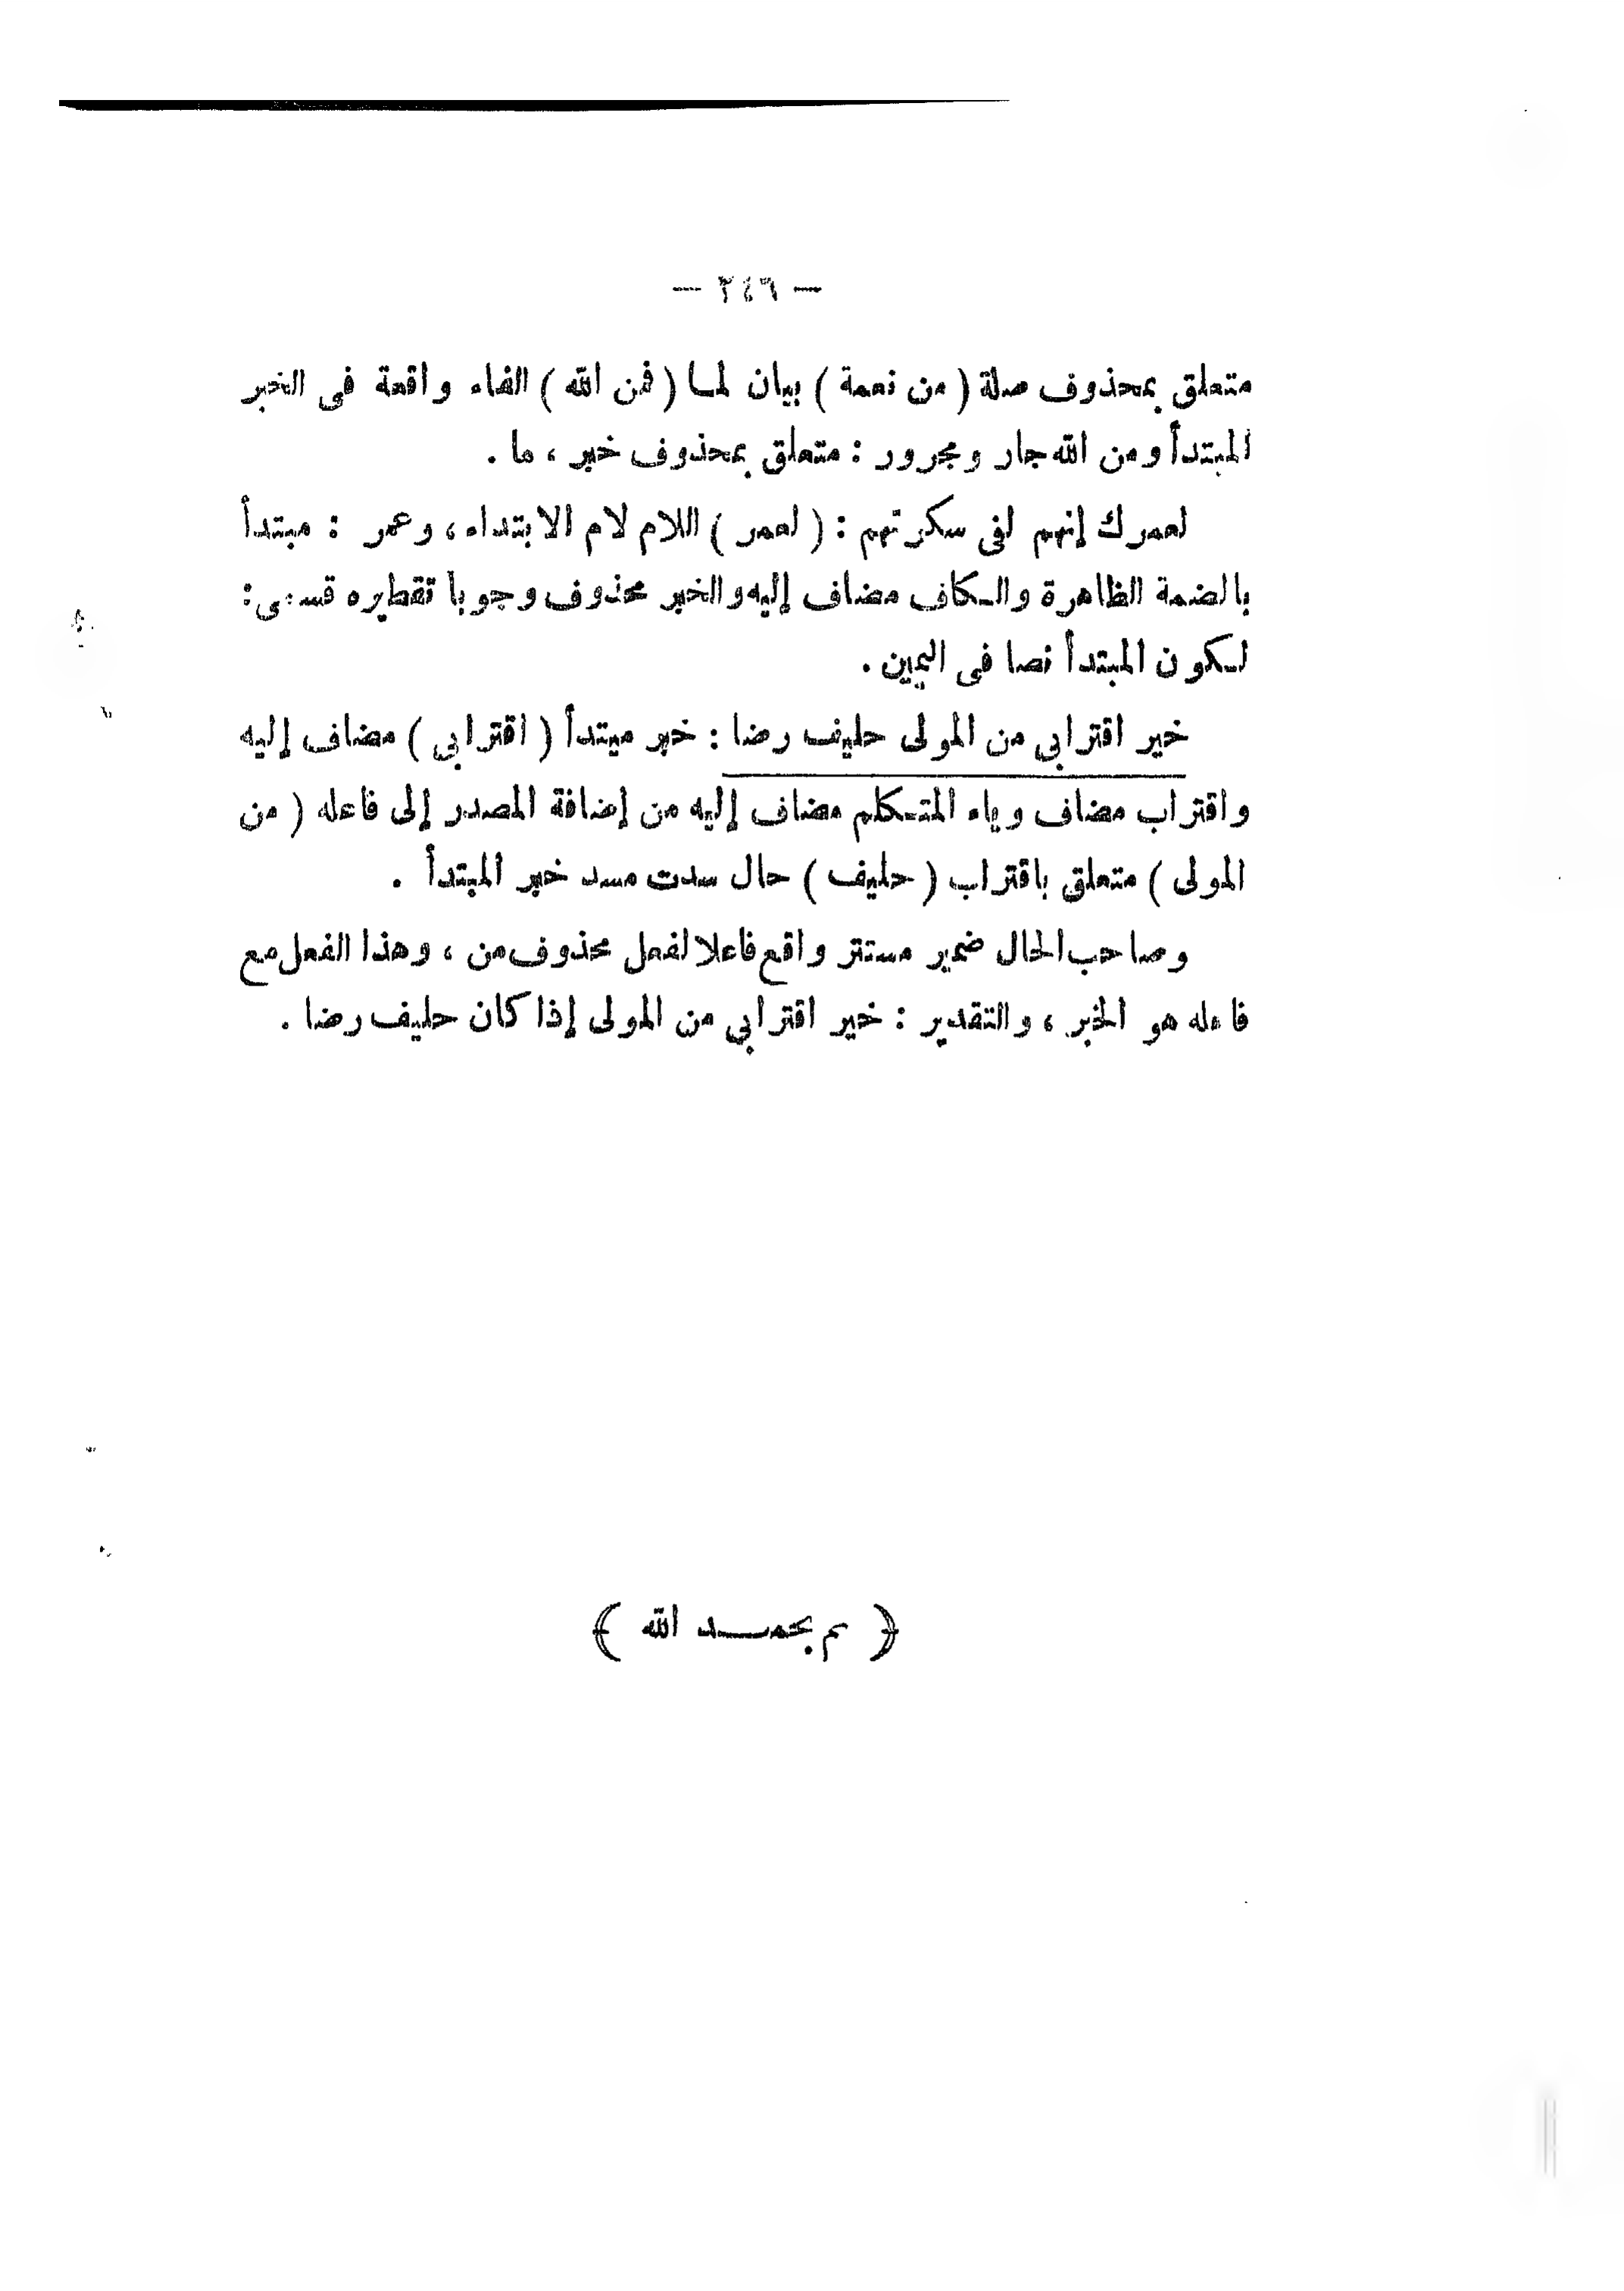 — ٢٤٦ —
متعلق بمحذوف صلة ( من نعمة ) بيان لما ( فمن الله ) الفاء واقعة فى الخبر
المبتدأ ومن الله جار ومجرور : متعلق بمحذوف خبر ، ما .
لعمرك إنهم لفى سكرتهم : ( لعمر ) اللام لام الابتداء ، وعمر : مبتدأ
بالضمة الظاهرة والكاف مضاف إليه والخبر محذوف وجوبا تقطيره قسمى :
لكون المبتدأ نصا فى اليمين .
خير اقترابى من المولى حليف رضا : خبر مبتدأ ( اقترابى ) مضاف إليه
واقتراب مضاف وياء المتكلم مضاف إليه من إضافة المصدر إلى فاعله ( من
المولى ) متعلق باقتراب ( حليف ) حال سدت مسد خبر المبتدأ .
وصاحب الحال ضمير مستتر واقع فاعلا لفعل محذوف من ، وهذا الفعل مع
فاعله هو الخبر ، والتقدير : خير اقترابى من المولى إذا كان حليف رضا .
( تم بحمد الله )